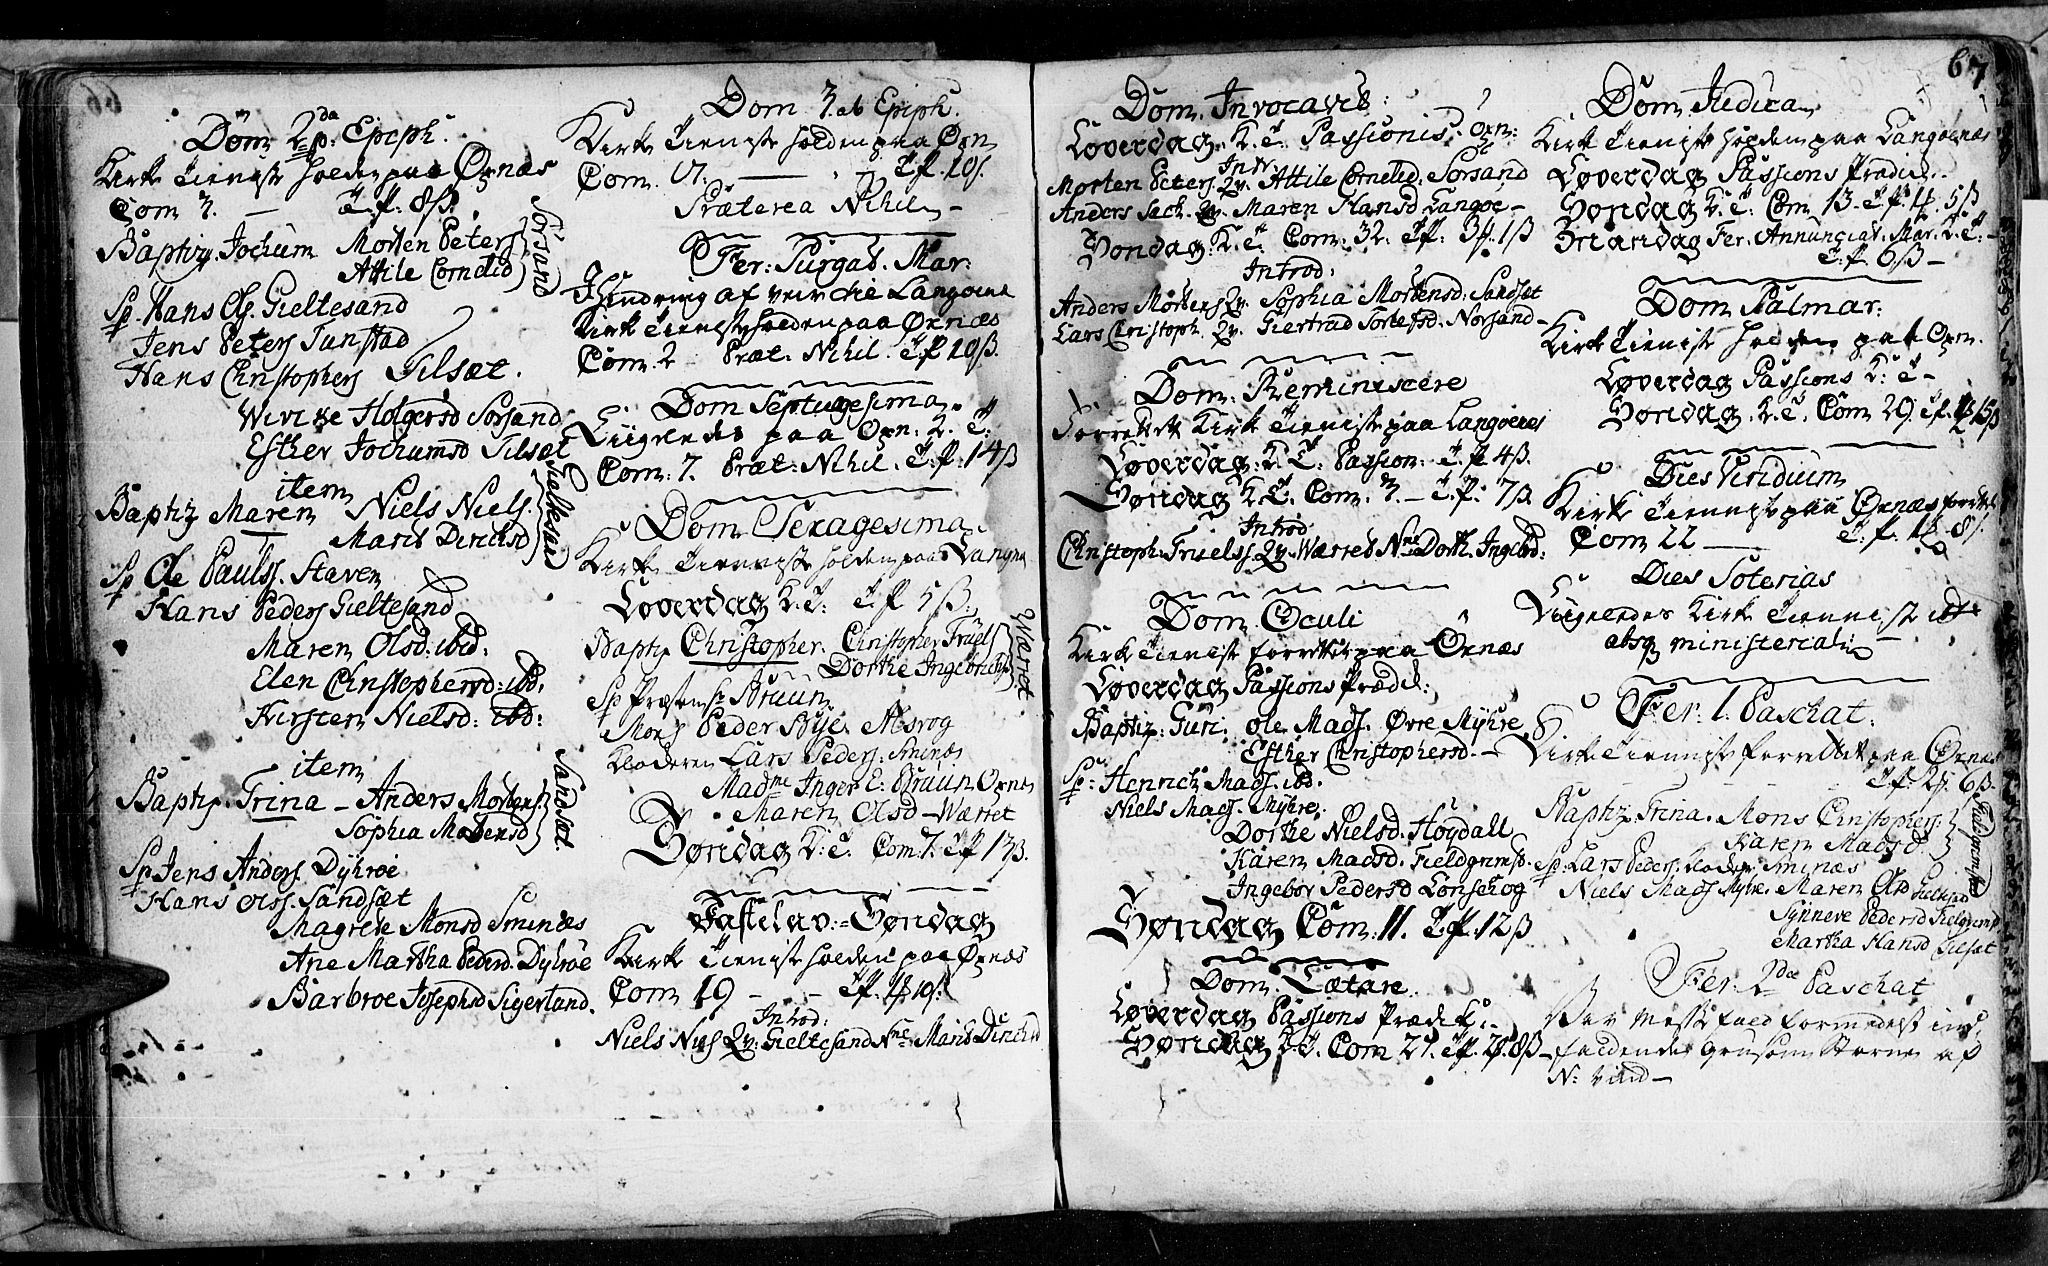 Dom 2da p: Epiph.
Kirke Tieniste holden paa Ørnæs
Com 3. — T. p. 8ß.
Baptiz. Jochum Morten Peters
Attile Cornelid
Sørsand
Sp. Hans Ols. Gieltesand
Jens Peters Tunstad
Hans Christophers Tilsæt.
Wivike Holgersd Sørsand
Esther Jochumsd Tilsæt
item
Baptiz Maren Niels Niels.
Marit Dirichsd
Sp Ole Pauls. Staven
Hans Peders Gieltesand
Maren Olsd: ibid:
Elen Christophersd: ibd.
Kirsten Nielsd: ibd:
item
Baptiz. Trina — Anders Mortens
Sophia Mortensd
Sandsæt
Sp Jens Anders. Dyhrøe
Hans Ols. Sandsæt
Magrete Monsd Sminæs
Ane Martha Pedersd. Dyhrøe
Barbroe Josephsd Sigerland.
Dom 3. ab Epiph.
Kirke Tieniste holden paa Ørn
Com. 17. — T. p. 10ß.
Præterea Nihil —
Fer: Purgat. Mar:
Hindring af veir die Langoene
Kirke Tieniste holden paa Ørnæs
Com. 2 Præt. Nihil. T. p. 10ß.
Dom Septuagesima
Liigeledes paa Ørn. K. T:
Com: 7. Præt: Nihil. T. p. 14ß
Dom Sexagesima.
Kirke Tienniste holden paa Langnæ
Løverdag K. T: T. p. 5ß.
Baptiz Christopher. Christopher Truels
Dorthe Ingebrichts
Værret
Sp Præsten Hr Bruun
Mons Peder Bye Alsvog
Klocheren Lars Peders. Sminæs
Madme Inger E: Bruun Ørnes
Maren Olsd — Wærret
Søndag K: T. Com 7. T. p. 13ß.
Fastelav: = Søndag
Kirke Tieniste holden paa Ørnæs
Com 19 — — T. p. 10ß.
Introd:
Niels Niels Qv: Gieltesand Nne Marit Dirichsd
67
Dom. Invocavit:
Løverdag. K. T. Passionis. Ørn:
Intr.
Morten Peters. Qv. Attile Cornelid. Sørsand
Anders Qv. Maren Hansd Langøe —
Søndag K. T. Com: 32. T. p. 1ß
Introd:
Anders Mortens Qv. Sophia Mortensd: Sandsæt
Lars Christoph. Qv. Giertrud Torlefsd. Norsand —
Dom: Reminiscere
Forrettet Kirke Tieniste paa Langoenes
Løverdag: K. T: Passion: T. p. 4ß.
Søndag K. T. Com. 3. — T. p. 7ß
Introd
Christoph. Truels Qv. Wærret Nne Dorth. Ingebd:
Dom. Oculi
Kirke Tieniste forrettet paa Ørnæs
Løverdag Passions Prædik:
Baptiz: Guri. Ole Mads. Øvre Myhre
Esther Christophersd. —
Sp: Henrich Mads. ibd.
Niels Mads. Myhre.
Dorthe Nielsd. Høydall
Karen Madsd. Fieldgrimsd.
Ingebor Pedersd Lonschog
Søndag Com. 11. T. p. 12ß
Dom. Lætare.
Løverdag Passions Prædik:
Søndag K. T. Com 27. T. p. 8ß —
Dom. Judica
Kirke Tieniste holden paa Langoenæs
Løverdag Passions Prædik. —
Søndag K. T: Com 13. T. p. 5ß
Mandag Fer. Annunciat. Mar. K. T: —
T. p 8ß —
Dom Palmar:
Kirke Tieniste holden paa Ørn.
Løverdag Passions K: T —
Søndag. K. T. Com 29. T. p. 15ß
Dies Viridium
Kirke Tienniste paa Ørnæs forrettet
Com 22 — T. p. 8ß.
Dies Soterias
Liigeledes Kirke Tienniste ibd
absq ministeriali —
Fer: 1. Paschat.
Kirke Tienniste forrettet paa Ørnæs
T. p. 6ß
Baptiz. Trina. Mons Christophers.
Karen Madsd
Sp: Lars Peders. Klocher Sminæs
Niels Mads Myhre. Maren Olsd Gieltesd
Synneve Pedersd
Martha Hansd Tilsæt
Fer: 2dæ Paschat
Blev Messe fald formedelst ind
faldende grusom Storm af
N: vind —